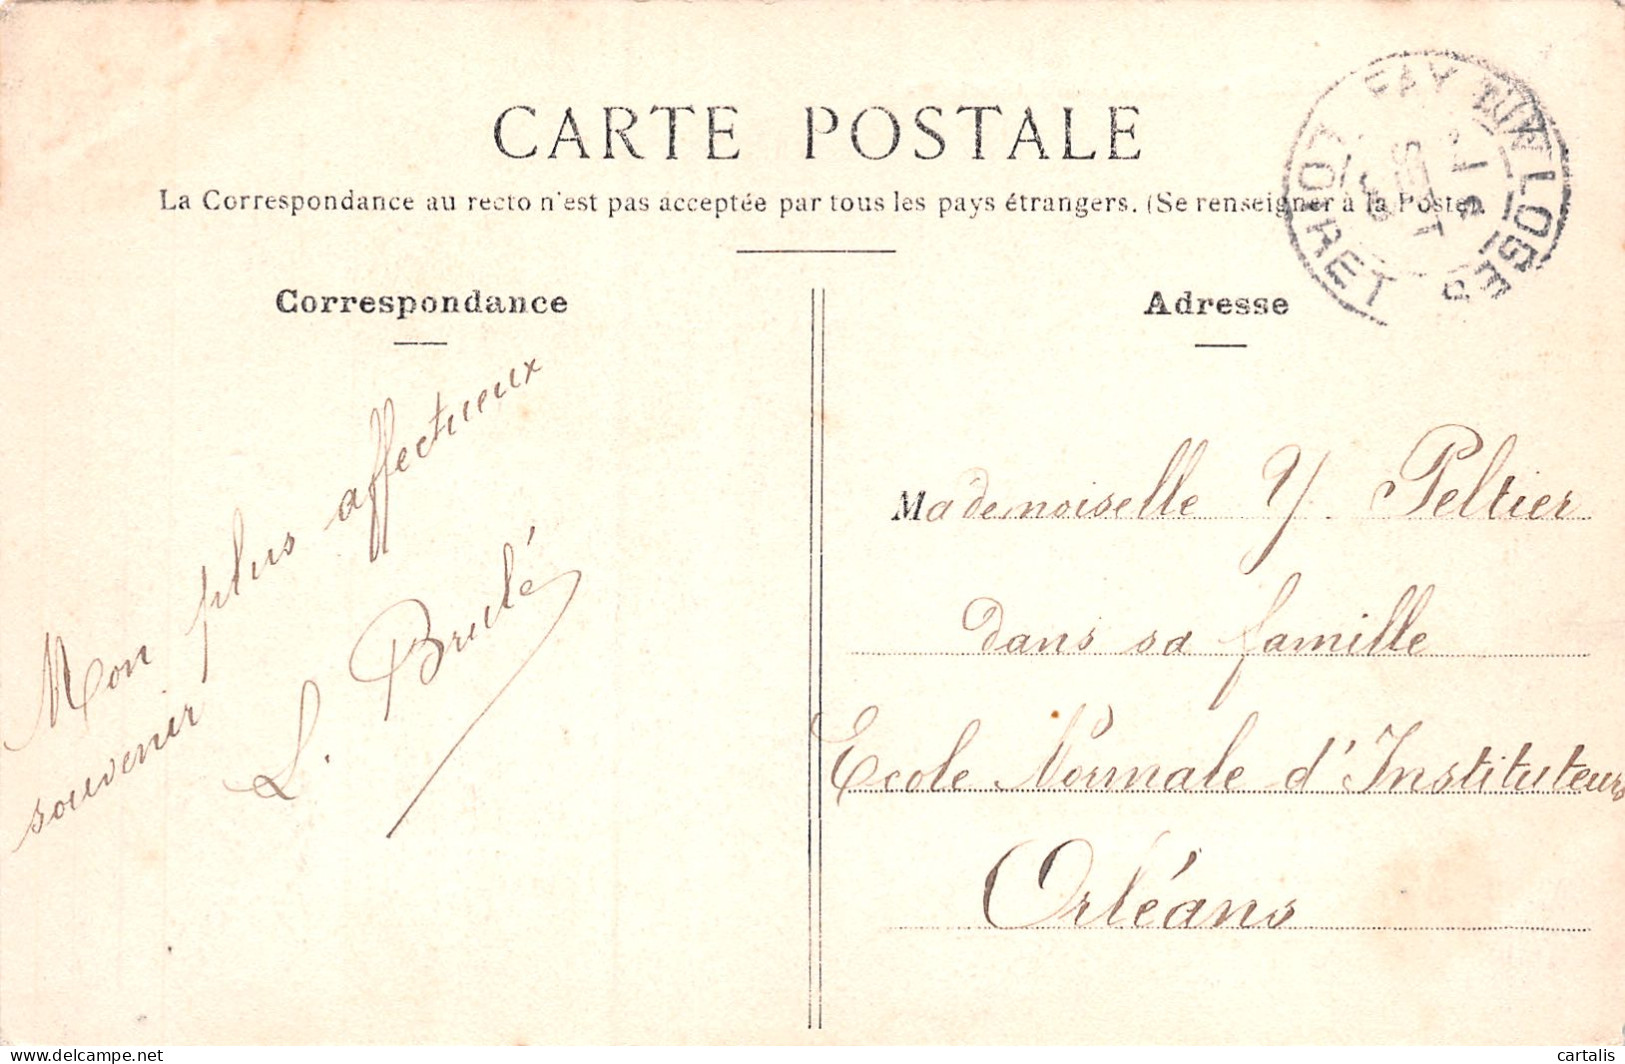 CARTE POSTALE
La Correspondance au recto n'est pas acceptée par tous les pays étrangers. (Se renseigner à la Poste)
Correspondance
Mon plus affectueux
souvenir
L. Brulé
Adresse
Mademoiselle Y. Peltier
dans sa famille
Ecole Normale d'Instituteurs
Orléans
FAY AUX LOGES
LOIRET
delcampe.net
cartalis